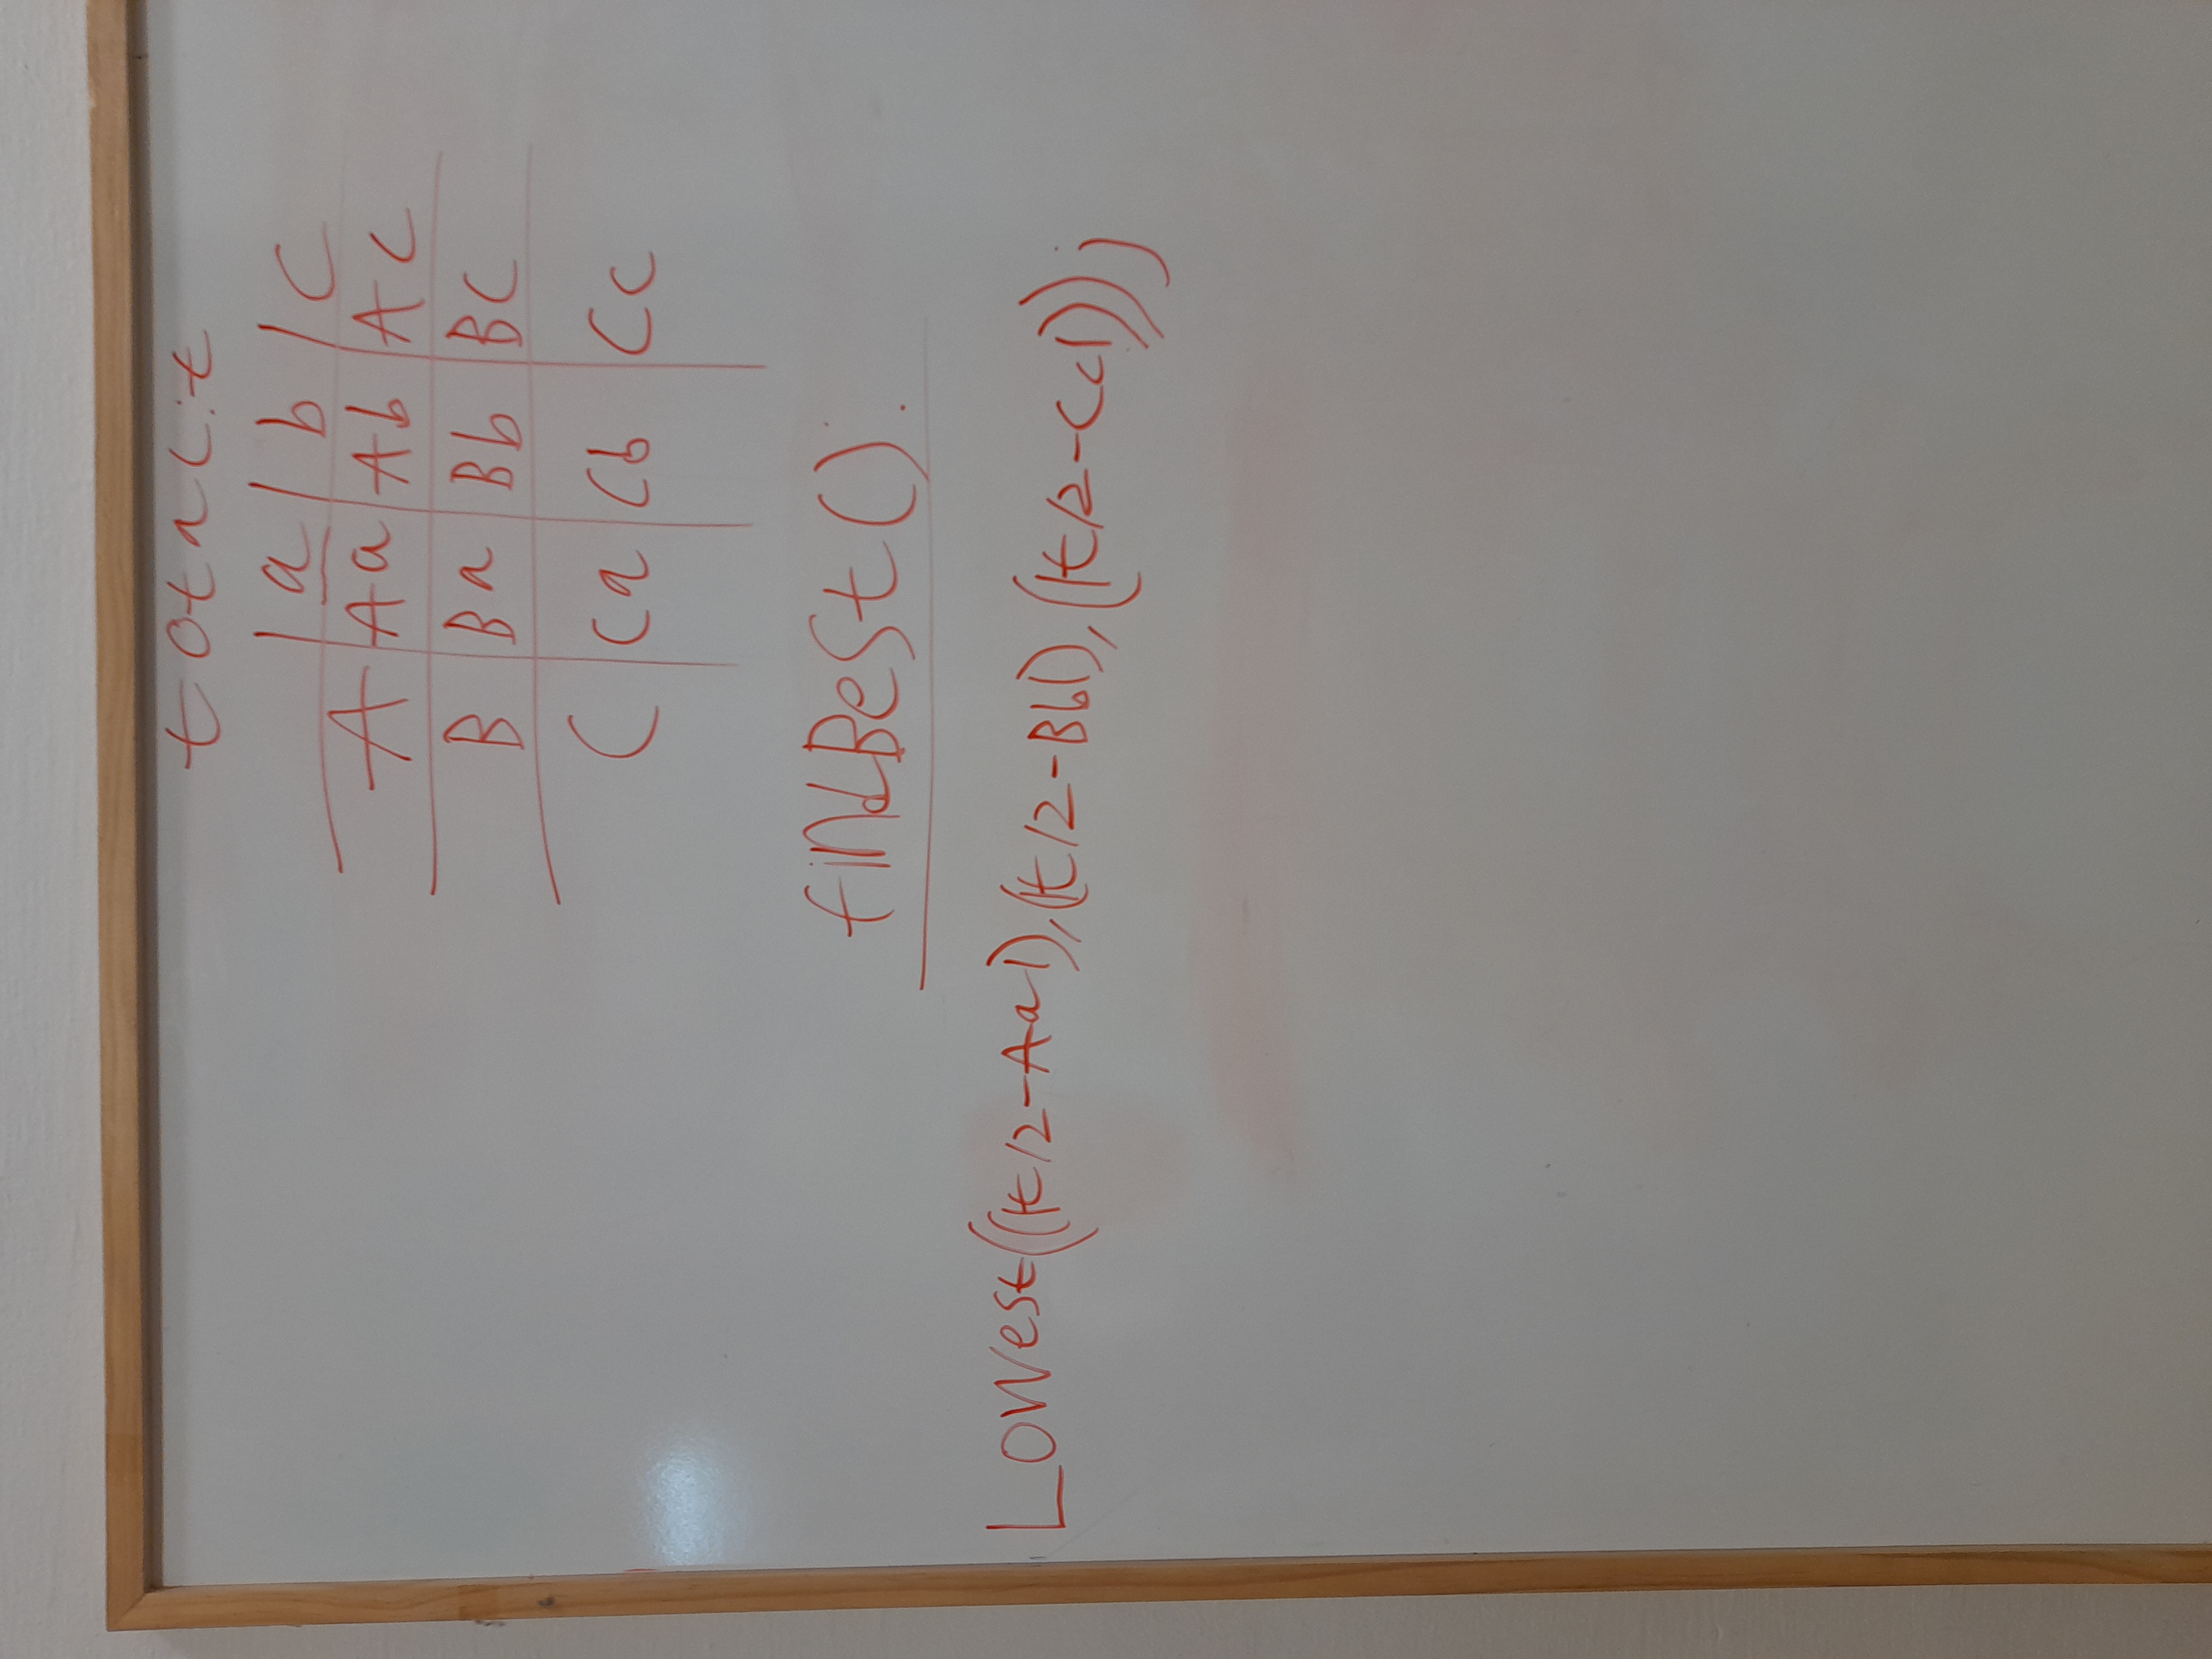 total: t
| a | b | C
A | Aa | Ab | Ac
B | Ba | Bb | BC
C | Ca | Cb | Cc
findBest():
Lowest((|t/2-Aa|),(|t/2-Bb|),(|t/2-Cc|));